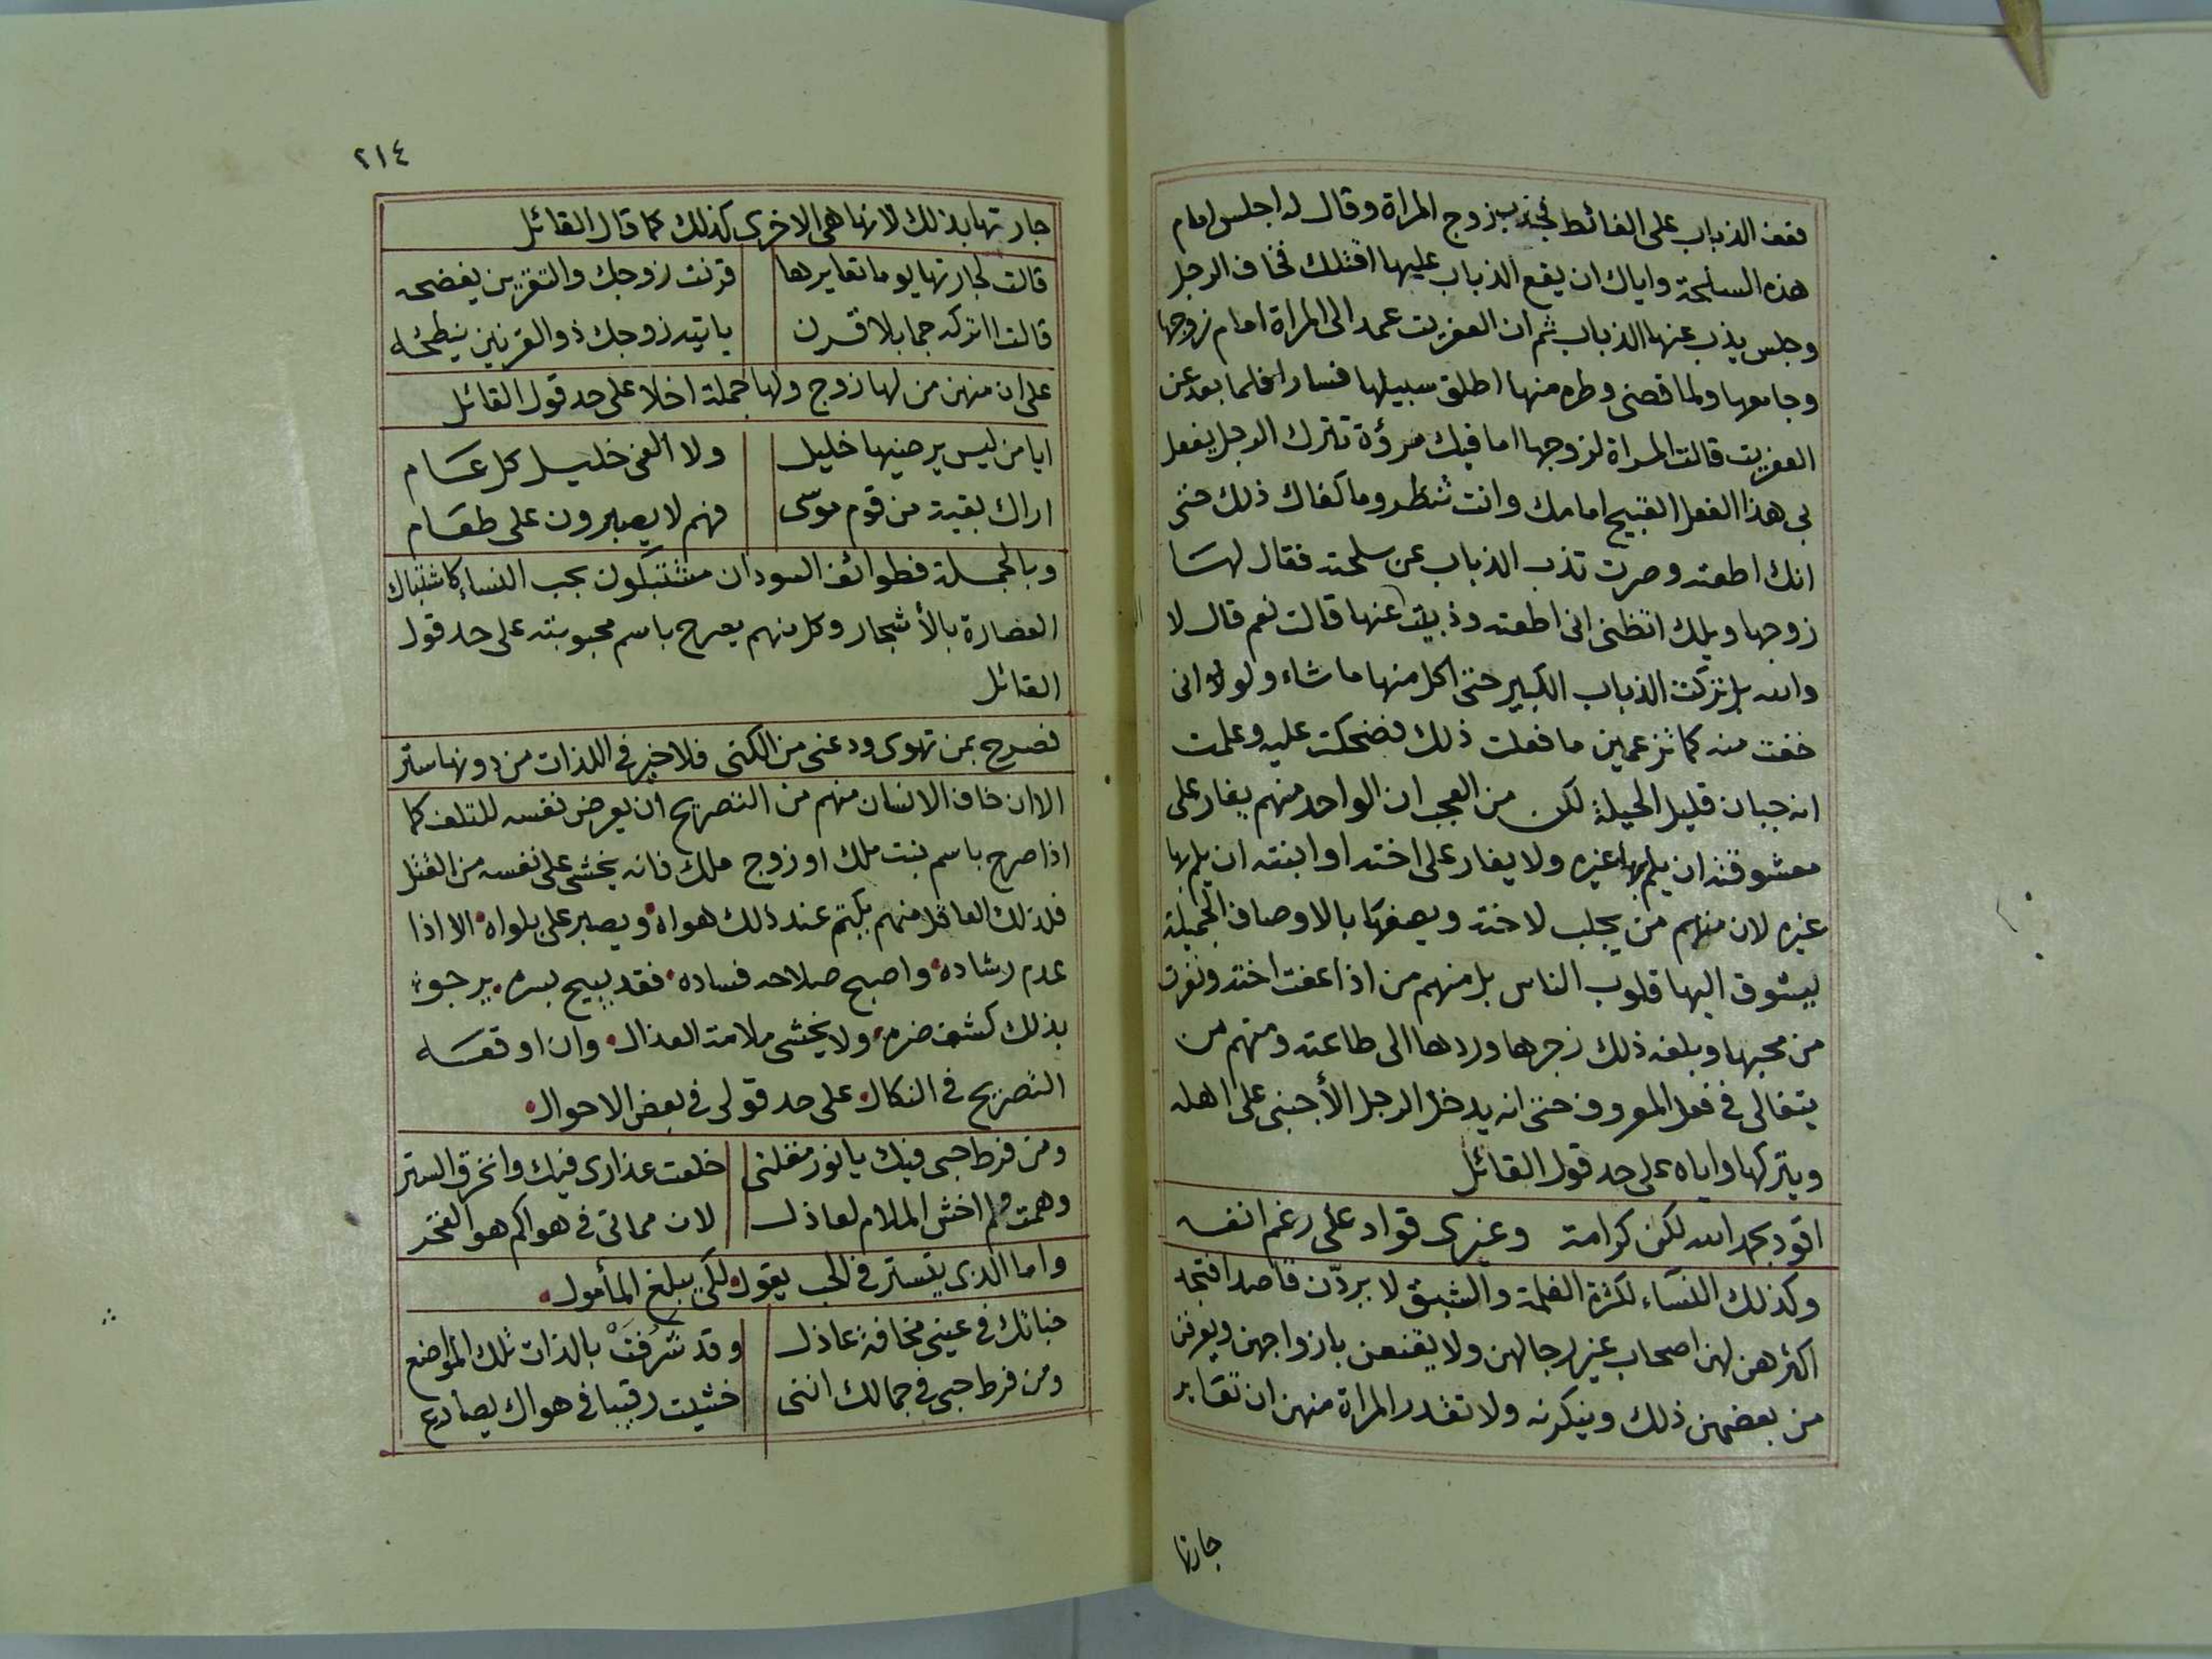 فقف الذباب على الغائط فجذب بزوج المراة وقال له اجلس امام
هذه السلحة واياك ان يقع الذباب عليها اقتلك فخاف الرجل
وجلس يذب عنها الذباب ثم ان العفريت عمد الى المراة امام زوجها
وجامعها ولما قضى وطره منها اطلق سبيلها فسارا فلما بعد عن
العفريت قالت المراة لزوجها اما فيك مرؤة تترك الرجل يفعل
بي هذا الفعل القبيح امامك وانت تنظر وما كفاك ذلك حتى
انك اطعته وصرت تذب الذباب عن سلحته فقال لها
زوجها ويلك اتظني اني اطعته وذبيت عنها قالت نعم قال لا
والله بل تركت الذباب الكبير حتى اكل منها ما شاء ولو لا اني
خفت منه كما تزعمين ما فعلت ذلك فضحكت عليه وعلمت
انه جبان قليل الحيلة لكن من العجب ان الواحد منهم يغار على
معشوقته ان يلم بها غيره ولا يغار على اخته او ابنته ان يلم بها
غيره لان منهم من يجلب لاخته ويصفها بالاوصاف الجميلة
ليشوق اليها قلوب الناس بل منهم من اذا عفت اخته ونفرت
من محبها وبلغه ذلك زجرها وردها الى طاعته ومنهم من
يتغالى في فعل المعروف حتى انه يدخل الرجل الأجنبي على اهله
ويتركها واياه على حد قول القائل
اقود بحمد الله لكن كرامة وغيرى قواد على رغم انفه
وكذلك النساء لكثرة الغلمة والشبق لا يردّن قاصدا فتجد
اكثرهن لهن اصحاب غير رجالهن ولا يقنعن بازواجهن ويعرفن
من بعضهن ذلك وينكرنه ولا تقدر المراة منهن ان تعاير
جارتها
٢١٤
جارتها بذلك لانها هى الاخرى كذلك كما قال القائل
قالت لجارتها يوما تعايرها قرنت زوجك والتقرين يفضحه
قالت ااتركه جما بلا قرن ياتيه زوجك ذو القرنين ينطحه
على ان منهن من لها زوج ولها جملة اخلا على حد قول القائل
ايا من ليس يرضيها خليل ولا الفى خليل كل عام
اراك بقية من قوم موسى فهم لا يصبرون على طعام
وبالجملة فطوائف السودان مشتبكون بحب النساء كاشتباك
العصارة بالأشجار وكل منهم يصرح باسم محبوبته على حد قول
القائل
فصرح بمن تهوى ودعنى من الكنى فلا خير في اللذات من دونها ستر
الا ان خاف الانسان منهم من التصريح ان يعرض نفسه للتلف كما
اذا صرح باسم بنت ملك او زوج ملك فانه يخشى على نفسه من القتل
فلذلك العاقل منهم يكتم عند ذلك هواه ويصبر على بلواه الا اذا
عدم رشاده واصبح صلاحه فساده فقد يبيح بسره يرجو
بذلك كشف ضره ولا يخشى ملامة العذال وان اوقعه
التصريح في النكال على حد قولى في بعض الاحوال
ومن فرط حبى فيك يا نور مقلتى خلعت عذارى فيك وانخرق الستر
وهمت فلم اخش الملام لعاذل لان مماتى في هواكم هو الفخر
واما الذى يتستر في الحب يقول لكى يبلغ المأمول
خباتك في عينى مخافة عاذل وقد شرفت بالذات تلك المواضع
ومن فرط حبى في جمالك اننى خشيت رقيبا في هواك يصادع